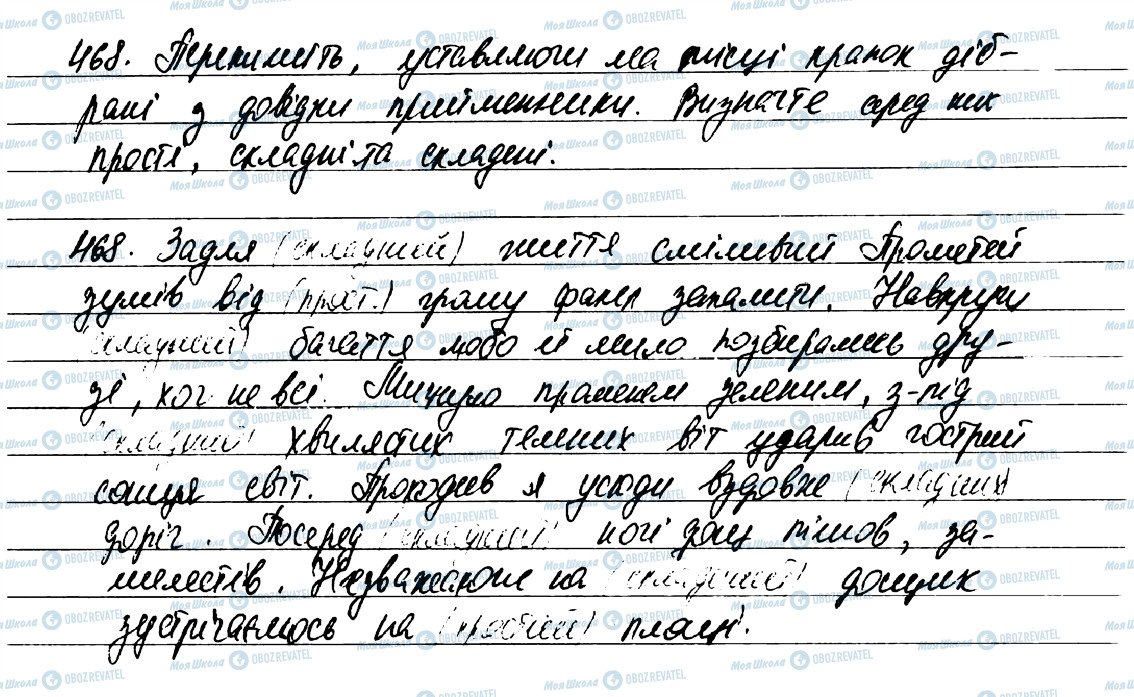 468. Перепишіть, уставляючи на місці крапок діб-
рані з довідки прийменники. Визначте серед них
прості, складні та складені.
468. Задля (складний) життя сміливий Прометей
зумів від (прост.) грому факел запалити. Навкруги
(складний) багаття любо й мило позбирались дру-
зі, хоч не всі. Минуло променем зеленим, з-під
(складний) хвилястих темних віт ударив гострий
сонця світ. Проходив я усюди вздовж (складний)
доріг. Посеред (складний) ночі дощ пішов, за-
шелестів. Незважаючи на (складений) дощик
зустрічаємось на (простий) площі.